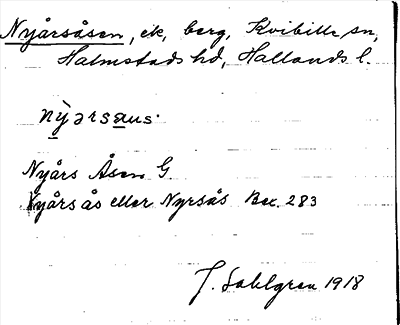 Nyårsåsen, ek, berg, Kvibille sn,
Halmstads hd, Hallands l.
nỳarsaus.
Nyårs Åsen G.
Nyårsås eller Nyrsås Bex. 283
J. Sahlgren 1918